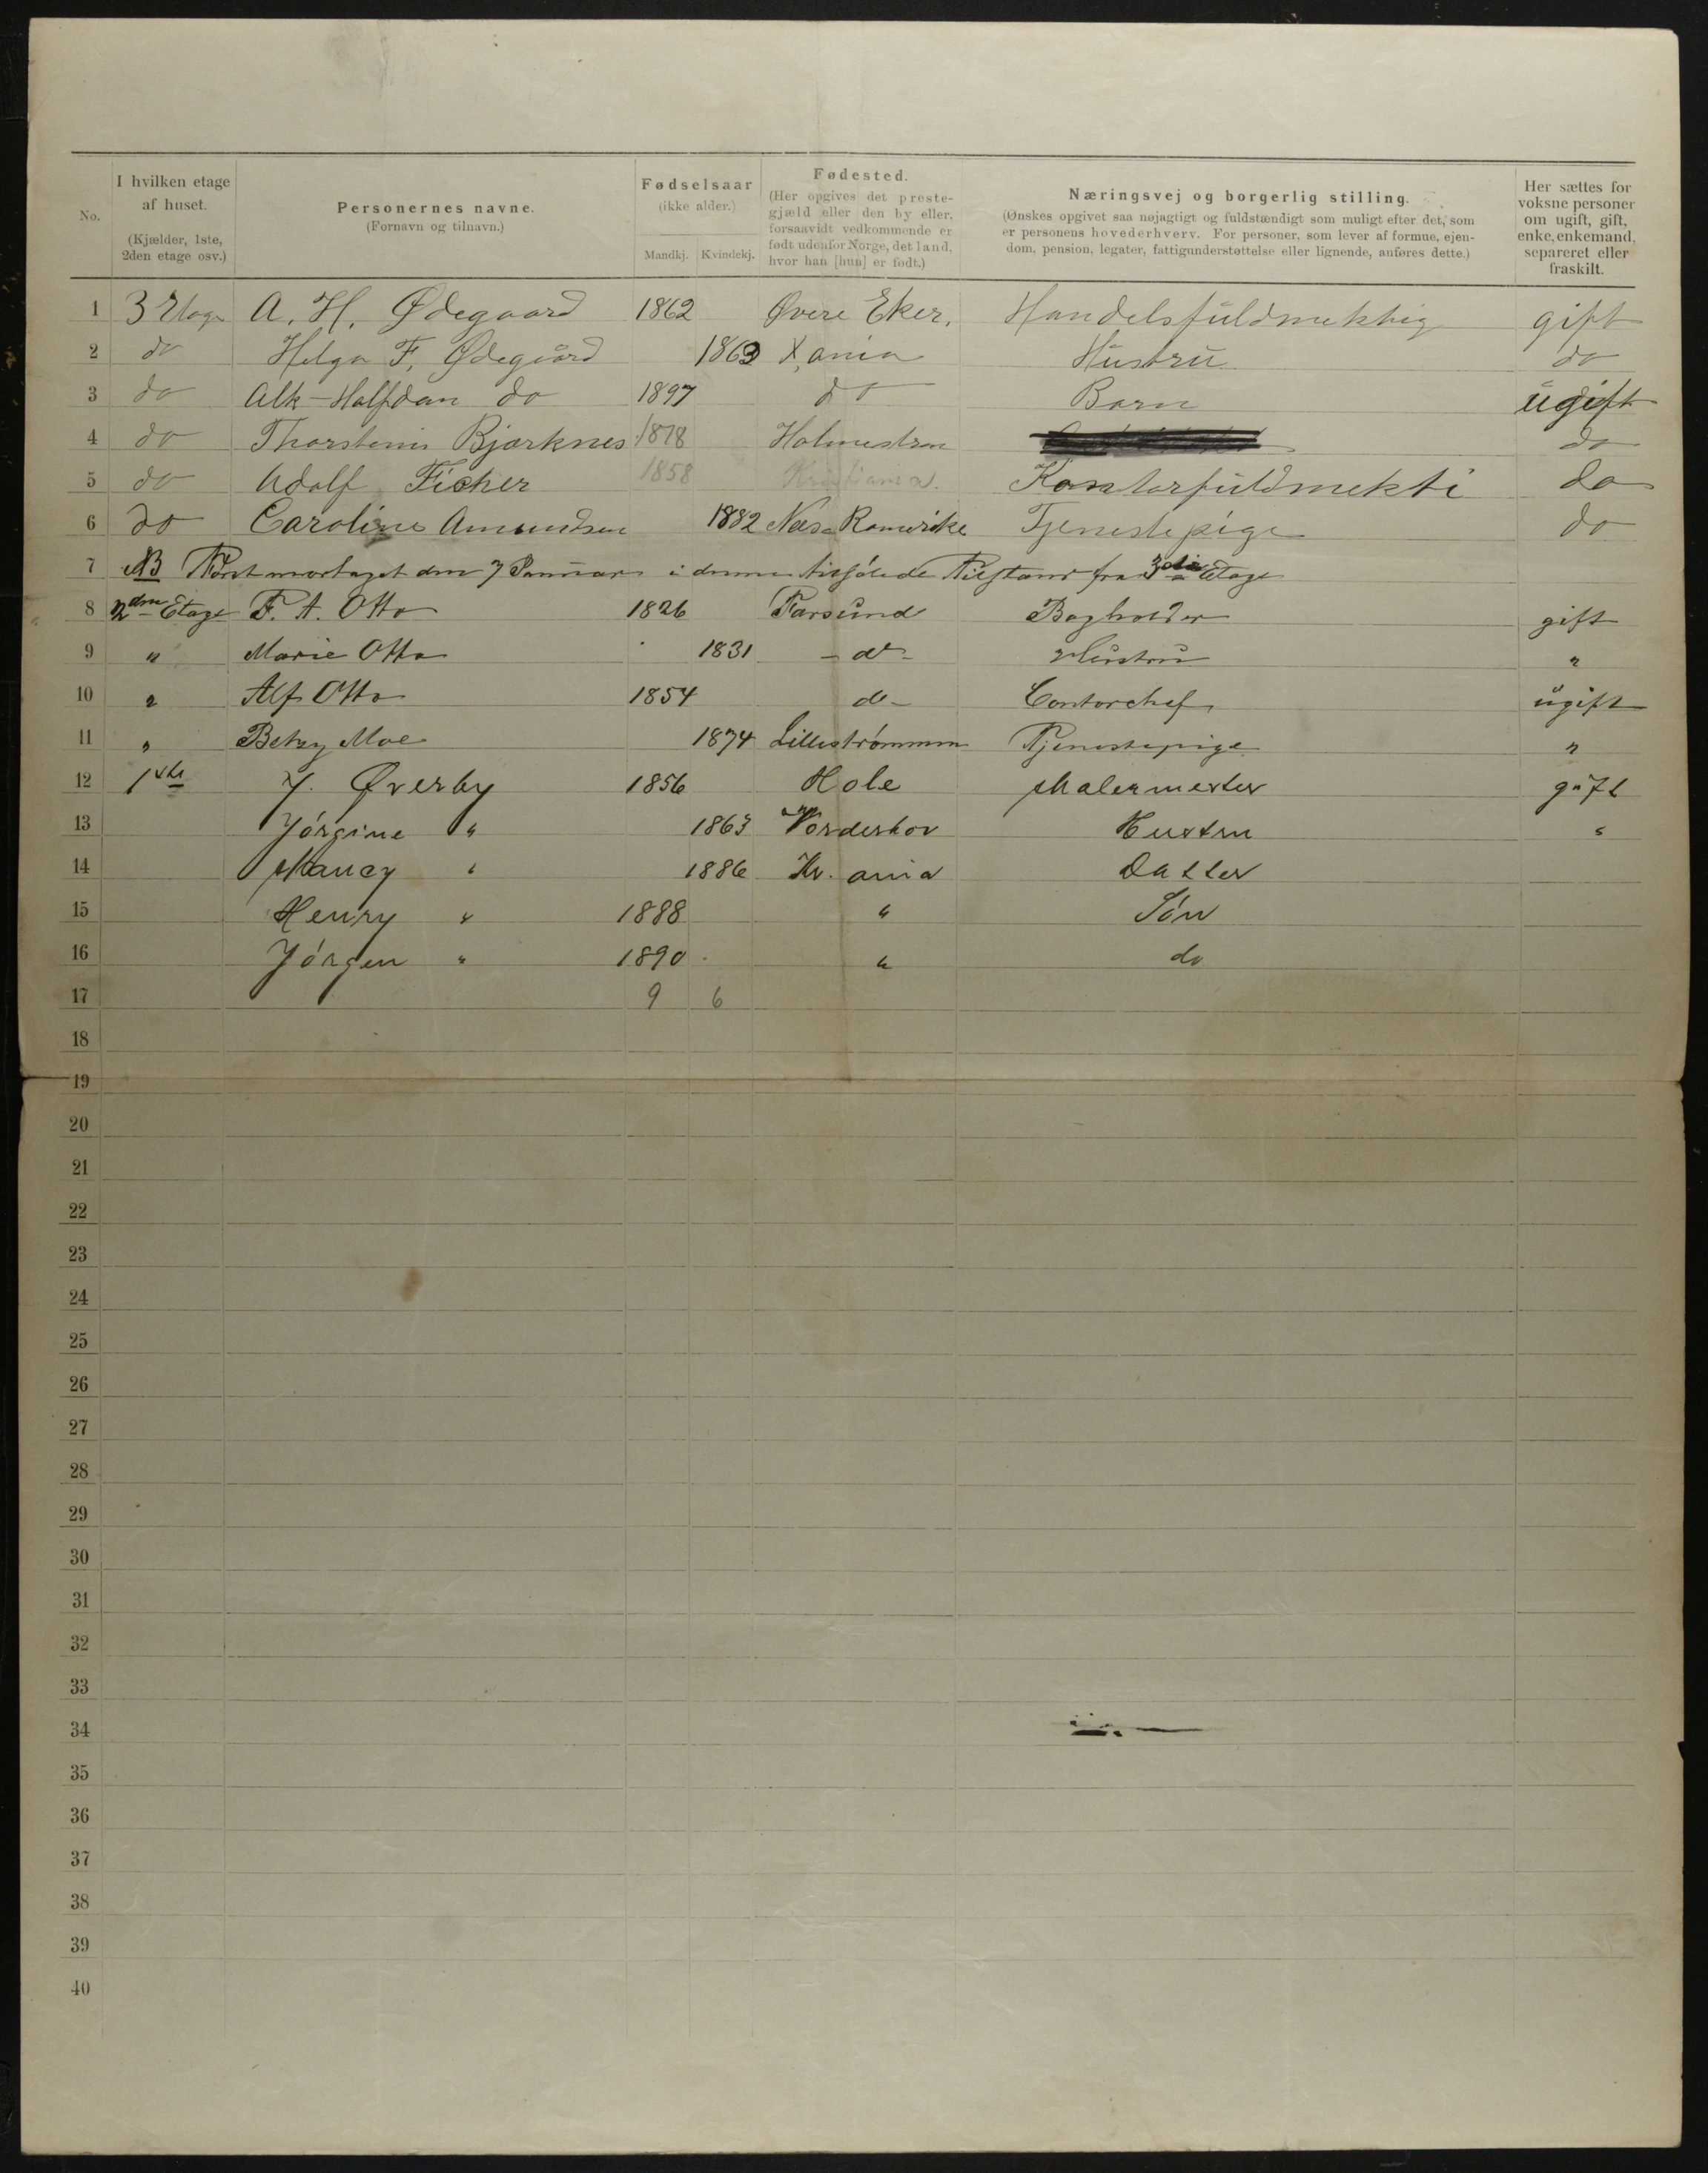 No.
I hvilken etage af huset. (Kjælder, 1ste, 2den etage osv.)
Personernes navne. (Fornavn og tilnavn.)
Fødselsaar (ikke alder.) Mandkj. Kvindekj.
Fødested. (Her opgives det prestegjæld eller den by eller, forsaavidt vedkommende er født udenfor Norge, det land, hvor han [hun] er født.)
Næringsvej og borgerlig stilling. (Ønskes opgivet saa nøjagtigt og fuldstændigt som muligt efter det, som er personens hovederhverv. For personer, som lever af formue, ejendom, pension, legater, fattigunderstøttelse eller lignende, anføres dette.)
Her sættes for voksne personer om ugift, gift, enke, enkemand, separeret eller fraskilt.
1 3 Etage A. H. Ødegaard 1862 Øvere Eker, Handelsfuldmektig gift
2 do Helga F. Ødegård 1863 X,ania Hustru do
3 do Alk-Halfdan do 1897 do Barn ugift
4 do Thorstein Bjørknes 1878 Holmestran do
5 do Adolf Ficher 1858 Kristiania. Kontorfuldmekti do
6 do Caroline Amundsen 1882 Næs Romerike Tjenestepige do
7 NB den 7 Januar i denne Tilstand fra 3die Etage
8 2den Etage F. A. Otto 1826 Farsund Bogholder gift
9 " Marie Otto 1831 - do - Hustru "
10 " Alf Otto 1854 do - Contorchef ugift
11 " Betzy Moe 1874 Lillestrømmen Tjenestepige "
12 1ste J. Øverby 1856 Hole Malermester gift
13 Jörgine " 1863 Norderhov Hustru "
14 Nancy " 1886 Kr. ania Datter
15 Henry " 1888 " Sön
16 Jörgen " 1890 " do
17 9 6
18
19
20
21
22
23
24
25
26
27
28
29
30
31
32
33
34
35
36
37
38
39
40